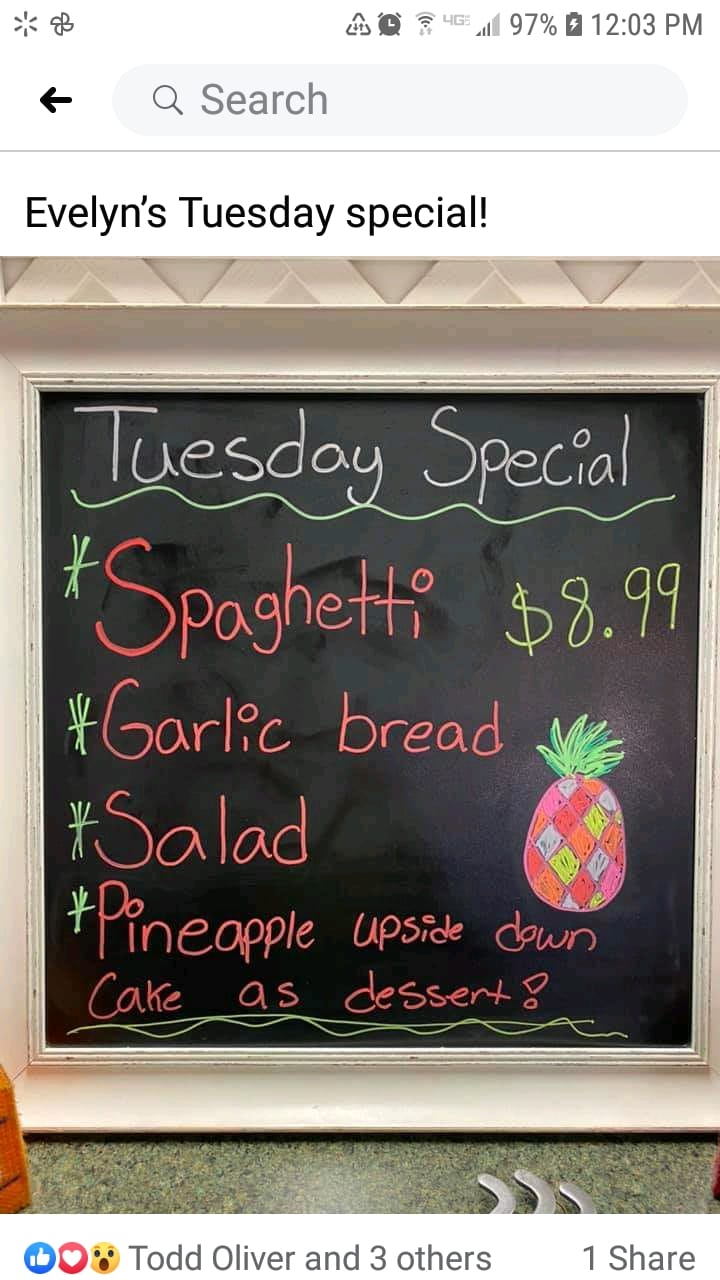 4GE 97% 12:03 PM
Search
Evelyn's Tuesday special!
Tuesday Special
*Spaghetti $8.99
*Garlic bread
*Salad
*Pineapple upside down
Cake as dessert!
Todd Oliver and 3 others 1 Share